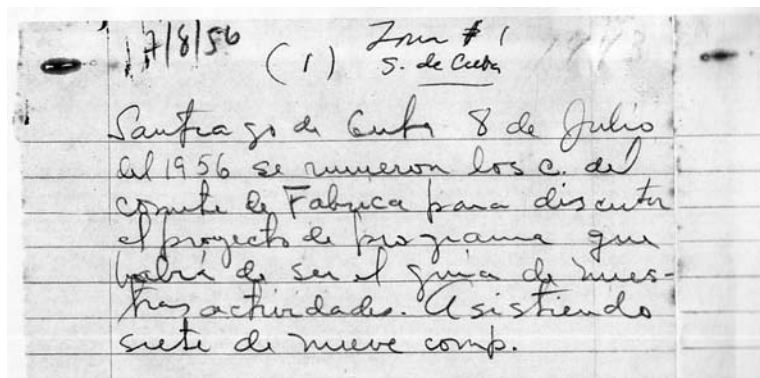 7/8/56
Zona # 1
(1) S. de Cuba
Santiago de Cuba 8 de Julio
del 1956 se runieron los c. del
comite de Fabrica para discutir
el proyecto de programa que
habra de ser el guia de nues-
tras actividades. Asistiendo
siete de nueve comp.